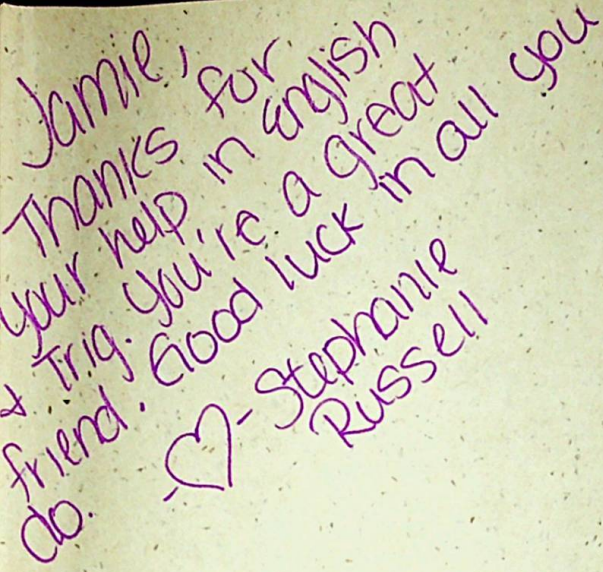 Jamie,
Thanks for
your help in English
& Trig. You're a great
friend. Good luck in all you
do.
♡- Stephanie
Russell